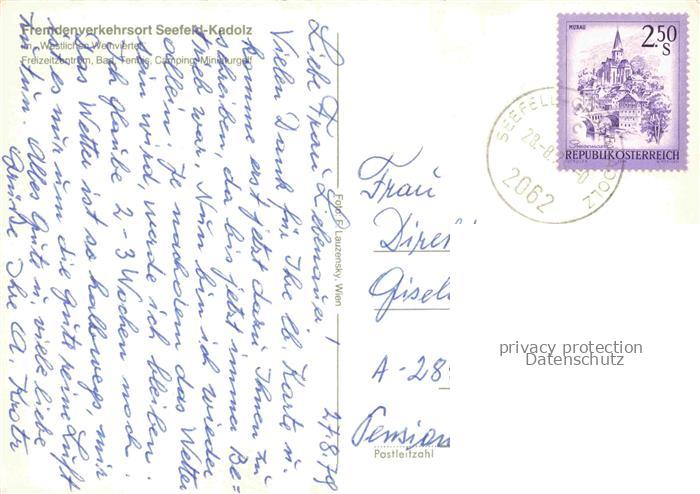 Fremdenverkehrsort Seefeld-Kadolz
Westlichen Weinviertel
Freizeitzentrum, Bad, Tennis, Camping, Minigurgolf
27.8.79
Liebe Frau
Vielen Dank für Ihre lb Karte u.
komme erst jetzt dazu Ihnen zu
schreiben, da bis jetzt immer Be=
such war. Nun bin ich wieder
allein. Je nachdem das Wetter
dann wird, werde ich bleiben.
Ich glaube 2-3 Wochen noch.
Das Wetter ist so halbwegs, mir
ist es nur um die gute reine Luft
zu tun. Alles Gute u. viele liebe
Grüße Ihre A.
Foto F. Lauzensky, Wien
Frau
Direk
Gisel
A-28
Pension
Postleitzahl
MURAU
2.50
S
Steiermark
REPUBLIK ÖSTERREICH
SEEFELD-KADOLZ
28.-8.
2062
privacy protection
Datenschutz